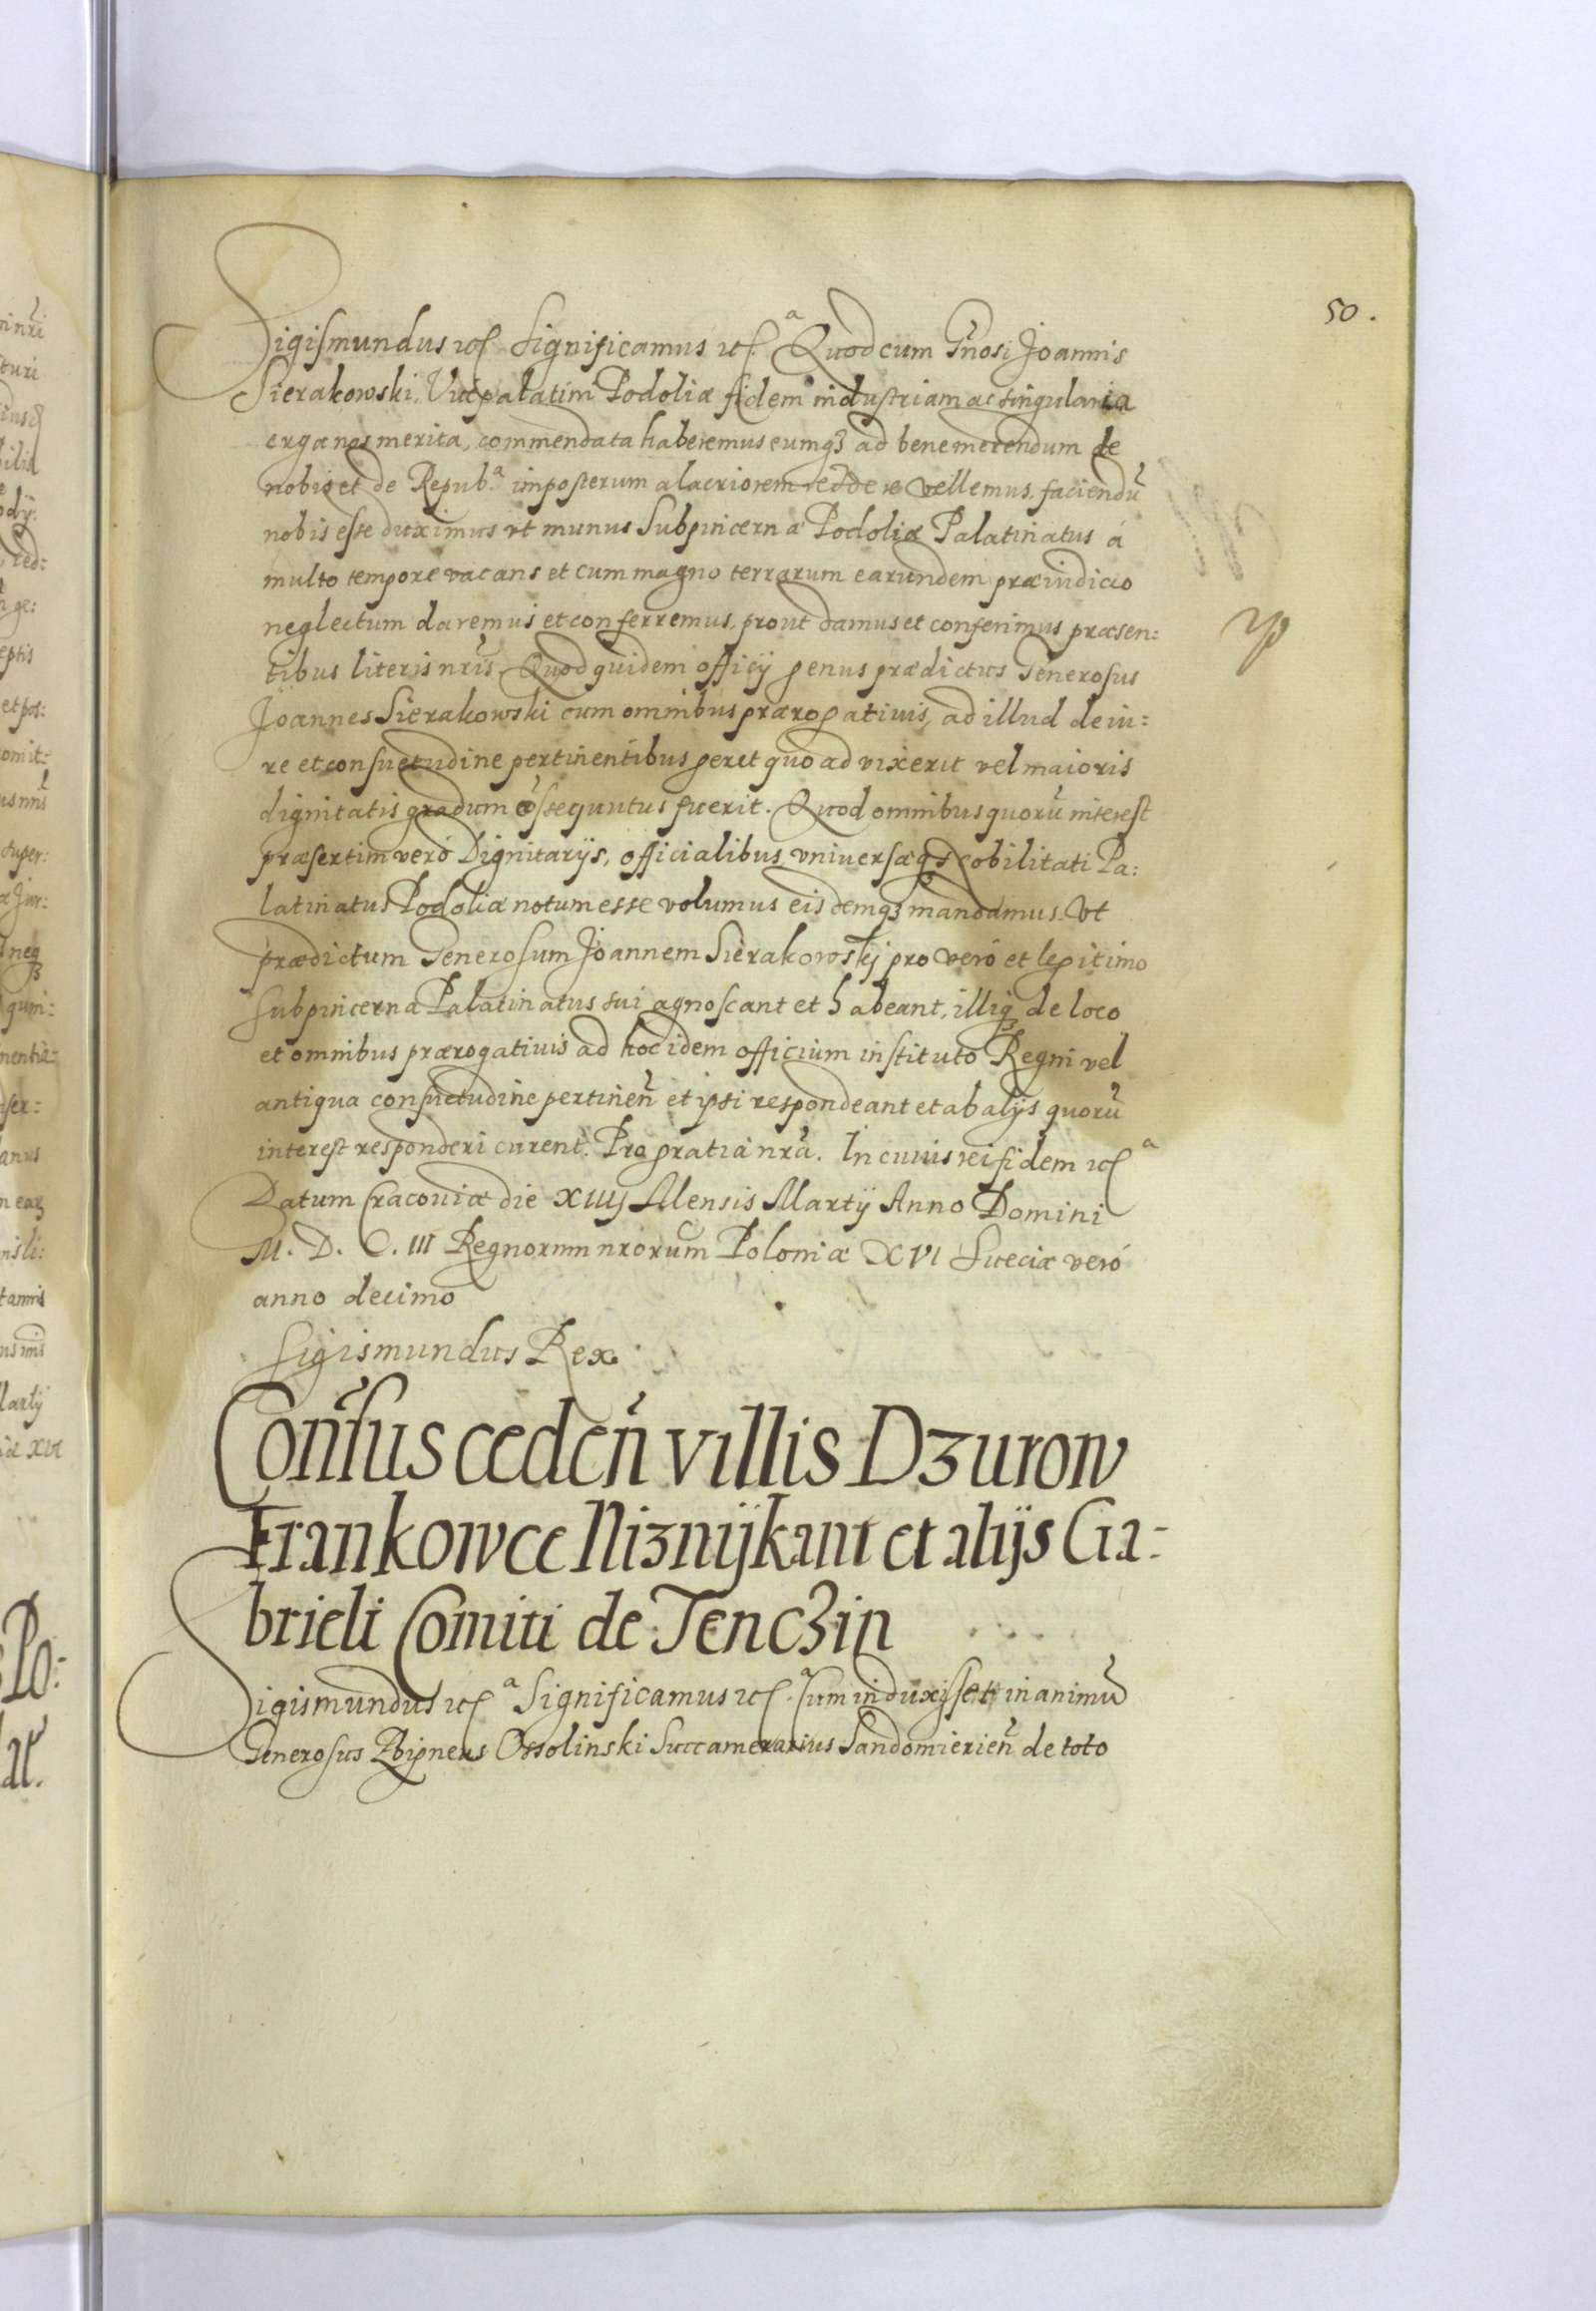 50.
Sigismundus etc. Significamus etc.ª Quod cum Gñosi Joannis
Sierakowski, Vicepalatini Podoliæ fidem industriam ac singularia
erga nos merita, commendata haberemus eumq3 ad benemerendum de
nobis et de Repub.ª imposterum alacriorem reddere vellemus, faciendũ
nobis esse duximus vt munus Subpincernæ Podoliæ Palatinatus á
multo tempore vacans et cum magno terrarum earundem præiudicio
neglectum daremus et conferremus, prout damus et conferimus præsen:
tibus literis nrĩs. Quod quidem officÿ genus prædictus Generosus
Joannes Sierakowski cum omnibus prærogatiuis, ad illud de iu:
re et consuetudine pertinentibus geret quo ad vixerit vel maioris
dignitatis gradum assequutus fuerit. Quod omnibus quorũ interest
præsertim veró Dignitarÿs, officialibus, vniuersæq3 Nobilitati Pa:
latinatus Podoliæ notum esse volumus eisdemq3 mandamus. Vt
prædictum Generosum Joannem Sierakowskj pro veró et legitimo
subpincerna Palatinatus sui agnoscant et habeant, illiq3 de loco
et omnibus prærogatiuis ad hoc idem officium instituto Regni vel
antiqua consuetudine pertineñ et ipsi respondeant et ab alÿs quorũ
interest responderi curent. Pro gratia nrã. In cuius rei fidem etc.ª
Datum Cracouiæ die XIIIJ Mensis Martÿ Anno Domini
M. D. C. III Regnorum nrorũm Poloniæ XVI Sueciæ veró
anno decimo
Sigismundus Rex.
Coñsus cedeñ villis Dzurow
Frankowce Niznijkant et alijs Ga-
brieli Comiti de Tenczin
Sigismundus etc.ª Significamus etc.ª Cum induxisset in animũ
Generosus Zbigneus Ossolinski Succamerarius Sandomirieñ de toto